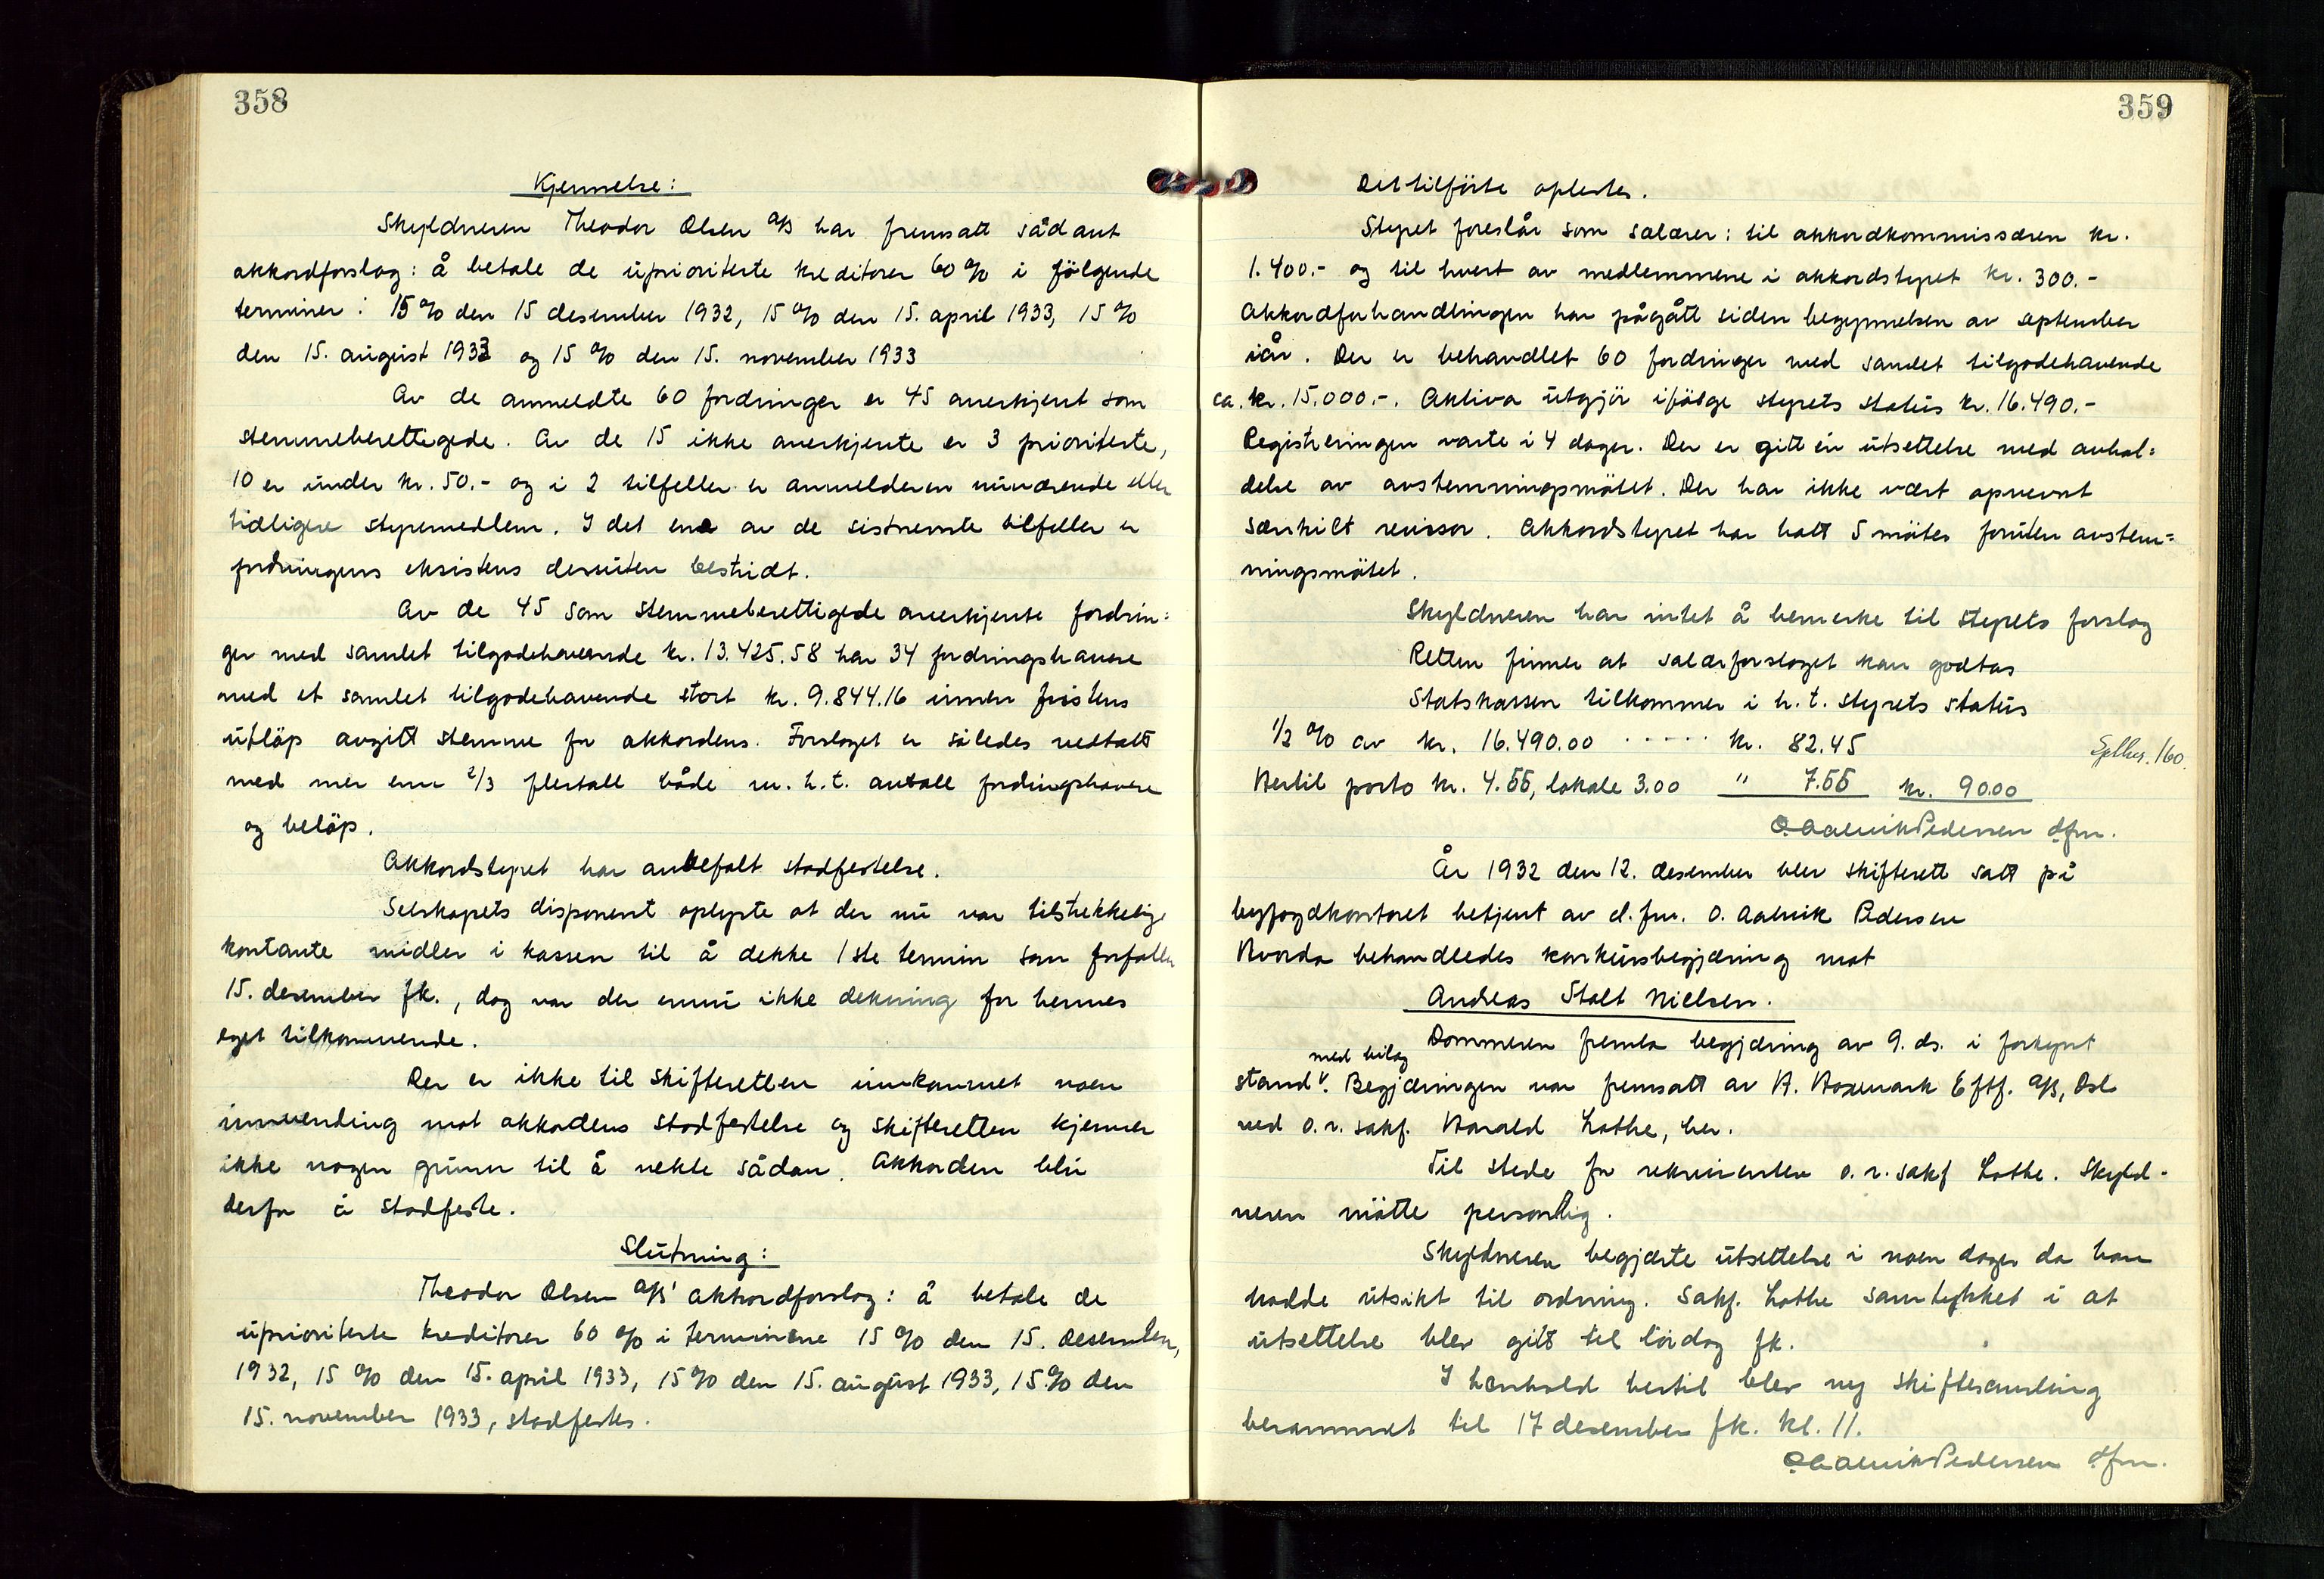 358
Kjennelse:
Skyldneren Theodor Olsen A/S har fremsatt sådant
akkordforslag: å betale de uprioriterte kreditorer 60 % i følgende
terminer: 15 % den 15 desember 1932, 15 % den 15. april 1933, 15 %
den 15. august 1933 og 15 % den 15. november 1933
Av de anmeldte 60 fordringer er 45 anerkjent som
stemmeberettigede. Av de 15 ikke anerkjente er 3 prioriterte,
10 er under kr. 50.- og i 2 tilfeller er anmelderen nuværende eller
tidligere styremedlem. I det ene av de sistnevnte tilfeller er
fordringens eksistens dessuten bestridt.
Av de 45 som stemmeberettigede anerkjente fordrin=
ger med samlet tilgodehavende kr. 13.425.58 har 34 fordringshavere
med et samlet tilgodehavende stort kr. 9.844.16 innen fristens
utløp avgitt stemme for akkordens. Forslaget er således vedtatt
med mer enn 2/3 flertall både m.h.t. antall fordringshavere
og beløp.
Akkordstyret har anbefalt stadfestelse.
Selskapets disponent oplyste at der nu var tilstrekkelige
kontante midler i kassen til å dekke 1ste termin som forfaller
15. desember fk., dog var der ennu ikke dekning for hennes
eget tilkommende.
Der er ikke til skifteretten innkommet noen
innvending mot akkordens stadfestelse og skifteretten kjenner
ikke nogen grunn til å nekte sådan. Akkorden blir
derfor å stadfeste.
Slutning:
Theodor Olsen A/S' akkordforslag: å betale de
uprioriterte kreditorer 60 % i terminene 15 % den 15. desember,
1932, 15 % den 15. april 1933, 15 % den 15. august 1933, 15 % den
15. november 1933, stadfestes.
359
Det tilførte oplestes.
Styret foreslår som salærer: til akkordkommissæren kr.
1.400.- og til hvert av medlemmene i akkordstyret kr. 300.-
Akkordforhandlingen har pågått siden begynnelsen av september
iår. Der er behandlet 60 fordringer med samlet tilgodehavende
ca. kr. 15.000.-. Aktiva utgjør ifølge styrets status kr. 16.490.-
Registreringen varte i 4 dager. Der er gitt én utsettelse med avhol=
delse av avstemningsmøtet. Der har ikke vært opnevnt
særskilt revisor. Akkordstyret har hatt 5 møter foruten avstem=
ningsmøtet.
Skyldneren har intet å bemerke til styrets forslag
Retten finner at salærforslaget kan godtas
Statskassen tilkommer i h.t. styrets status
1/2 % av kr. 16.490.00 ..... kr. 82.45
Hertil porto kr. 4.55, lokale 3.00 " 7.55 kr. 90.00
160.
O. Aalvik Pedersen dfm.
År 1932 den 12. desember blev skifterett satt på
byfogdkontoret betjent av d.fm. O. Aalvik Pedersen
Hvorda behandledes konkursbegjæring mot
Andreas Stolt Nielsen.
Dommeren fremla begjæring av 9. ds. i forkynt
med bilag
stand v. Begjæringen var fremsatt av H. Hoxmark Eftf. A/S, Oslo
ved o.r. sakf. Harald Lothe, her.
Til stede for rekvirenten o.r. sakf Lothe. Skyld-
neren møtte personlig.
Skyldneren begjærte utsettelse i noen dager da han
hadde utsikt til ordning. Sakf. Lothe samtykket i at
utsettelse blev gitt til lørdag fk.
I henhold hertil blev ny skiftesamling
berammet til 17 desember fk. kl. 11.
O. Aalvik Pedersen dfm.